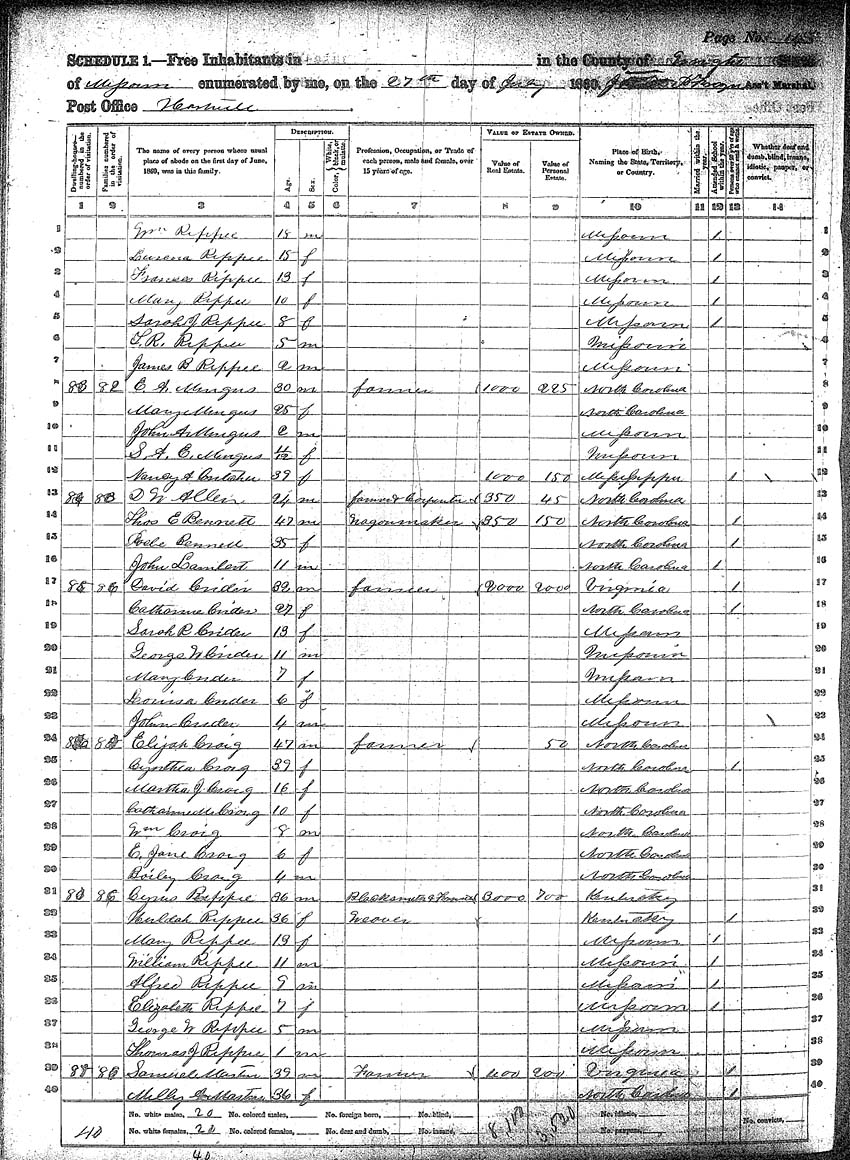 Page No.
SCHEDULE 1.—Free Inhabitants in in the County of Wright State
of Missouri enumerated by me, on the 27th day of July 1860. Ass't Marshal.
Post Office Hartville
Dwelling-houses—numbered in the order of visitation.
Families numbered in the order of visitation.
The name of every person whose usual place of abode on the first day of June, 1860, was in this family.
DESCRIPTION.
Age.
Sex.
Color, White, black, or mulatto.
Profession, Occupation, or Trade of each person, male and female, over 15 years of age.
VALUE OF ESTATE OWNED.
Value of Real Estate.
Value of Personal Estate.
Place of Birth, Naming the State, Territory, or Country.
Married within the year.
Attended School within the year.
Persons over 20 y'rs of age who cannot read & write.
Whether deaf and dumb, blind, insane, idiotic, pauper, or convict.
1 2 3 4 5 6 7 8 9 10 11 12 13 14
1 Wm Rippee 18 m Missouri 1 1
2 Lurena Rippee 15 f Missouri 1 2
3 Franses Rippee 13 f Missouri 1 3
4 Mary Rippee 10 f Missouri 1 4
5 Sarah J Rippee 8 f Missouri 1 5
6 T. R. Rippee 5 m Missouri 6
7 James B Rippee 2 m Missouri 7
8 82 E. A. Mingus 30 m farmer 1000 225 North Carolina 8
9 Mary Mingus 25 f North Carolina 9
10 John A Mingus 2 m Missouri 10
11 S. A. E. Mingus f Missouri 11
12 Nancy A 39 f 1000 150 Mississippi 1 12
13 83 D W Allen 24 m farmer & Carpenter 350 45 North Carolina 13
14 Thos E Bennett 47 m Wagonmaker 350 150 North Carolina 1 14
15 Febe Bennett 35 f North Carolina 1 15
16 John Lambert 11 m North Carolina 1 16
17 David Crider 32 m farmer 2000 2000 Virginia 1 17
18 Catharine Crider 27 f North Carolina 1 18
19 Sarah R Crider 13 f Missouri 19
20 George W Crider 11 m Missouri 20
21 Mary Crider 7 f Missouri 21
22 Louisa Crider 6 f Missouri 22
23 John Crider 4 m Missouri 23
24 Elijah Craig 47 m farmer 50 North Carolina 24
25 Cynthea Craig 39 f North Carolina 1 25
26 Martha J Craig 16 f North Carolina 26
27 Catharine M Craig 10 f North Carolina 27
28 Wm Craig 8 m North Carolina 28
29 E. Jane Craig 6 f North Carolina 29
30 Bailey Craig 4 m North Carolina 30
31 Cyrus Rippee 36 m Blacksmith & Farmer 3000 700 Kentucky 31
32 Huldah Rippee 36 f Weaver Kentucky 1 32
33 Mary Rippee 13 f Missouri 1 33
34 William Rippee 11 m Missouri 1 34
35 Alfred Rippee 9 m Missouri 1 35
36 Elizabeth Rippee 7 f Missouri 1 36
37 George W Rippee 5 m Missouri 37
38 Thomas J Rippee 1 m Missouri 38
39 Samuel Martin 39 m Farmer 400 200 Virginia 1 39
40 Milly Martin 36 f North Carolina 1 40
No. white males, 20 No. colored males, No. foreign born, No. blind, No. idiotic,
40 No. white females, 20 No. colored females, No. deaf and dumb, No. insane, 8,100 3,520 No. paupers, No. convicts,
40